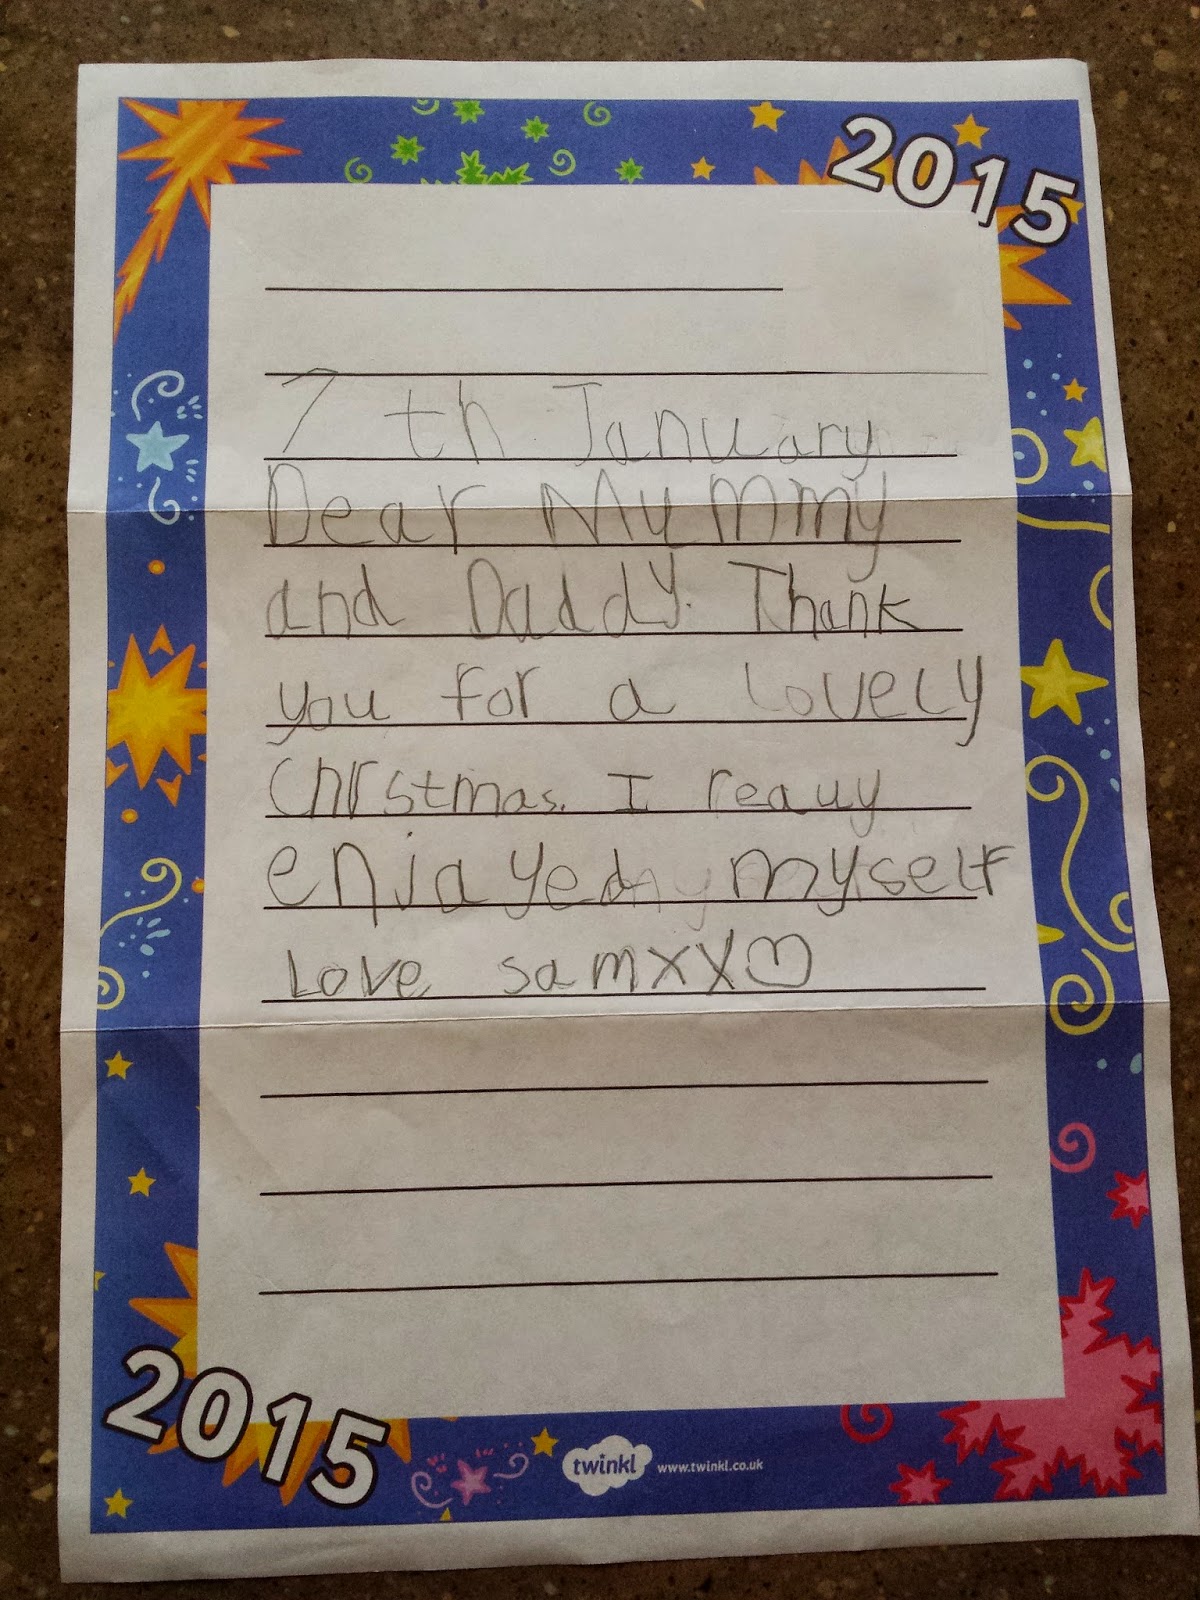 2015
7th January
Dear Mummy
and Daddy. Thank
you for a lovely
Chrstmas. I reauy
enjayed myself
Love samxx♡
2015
twinkl www.twinkl.co.uk